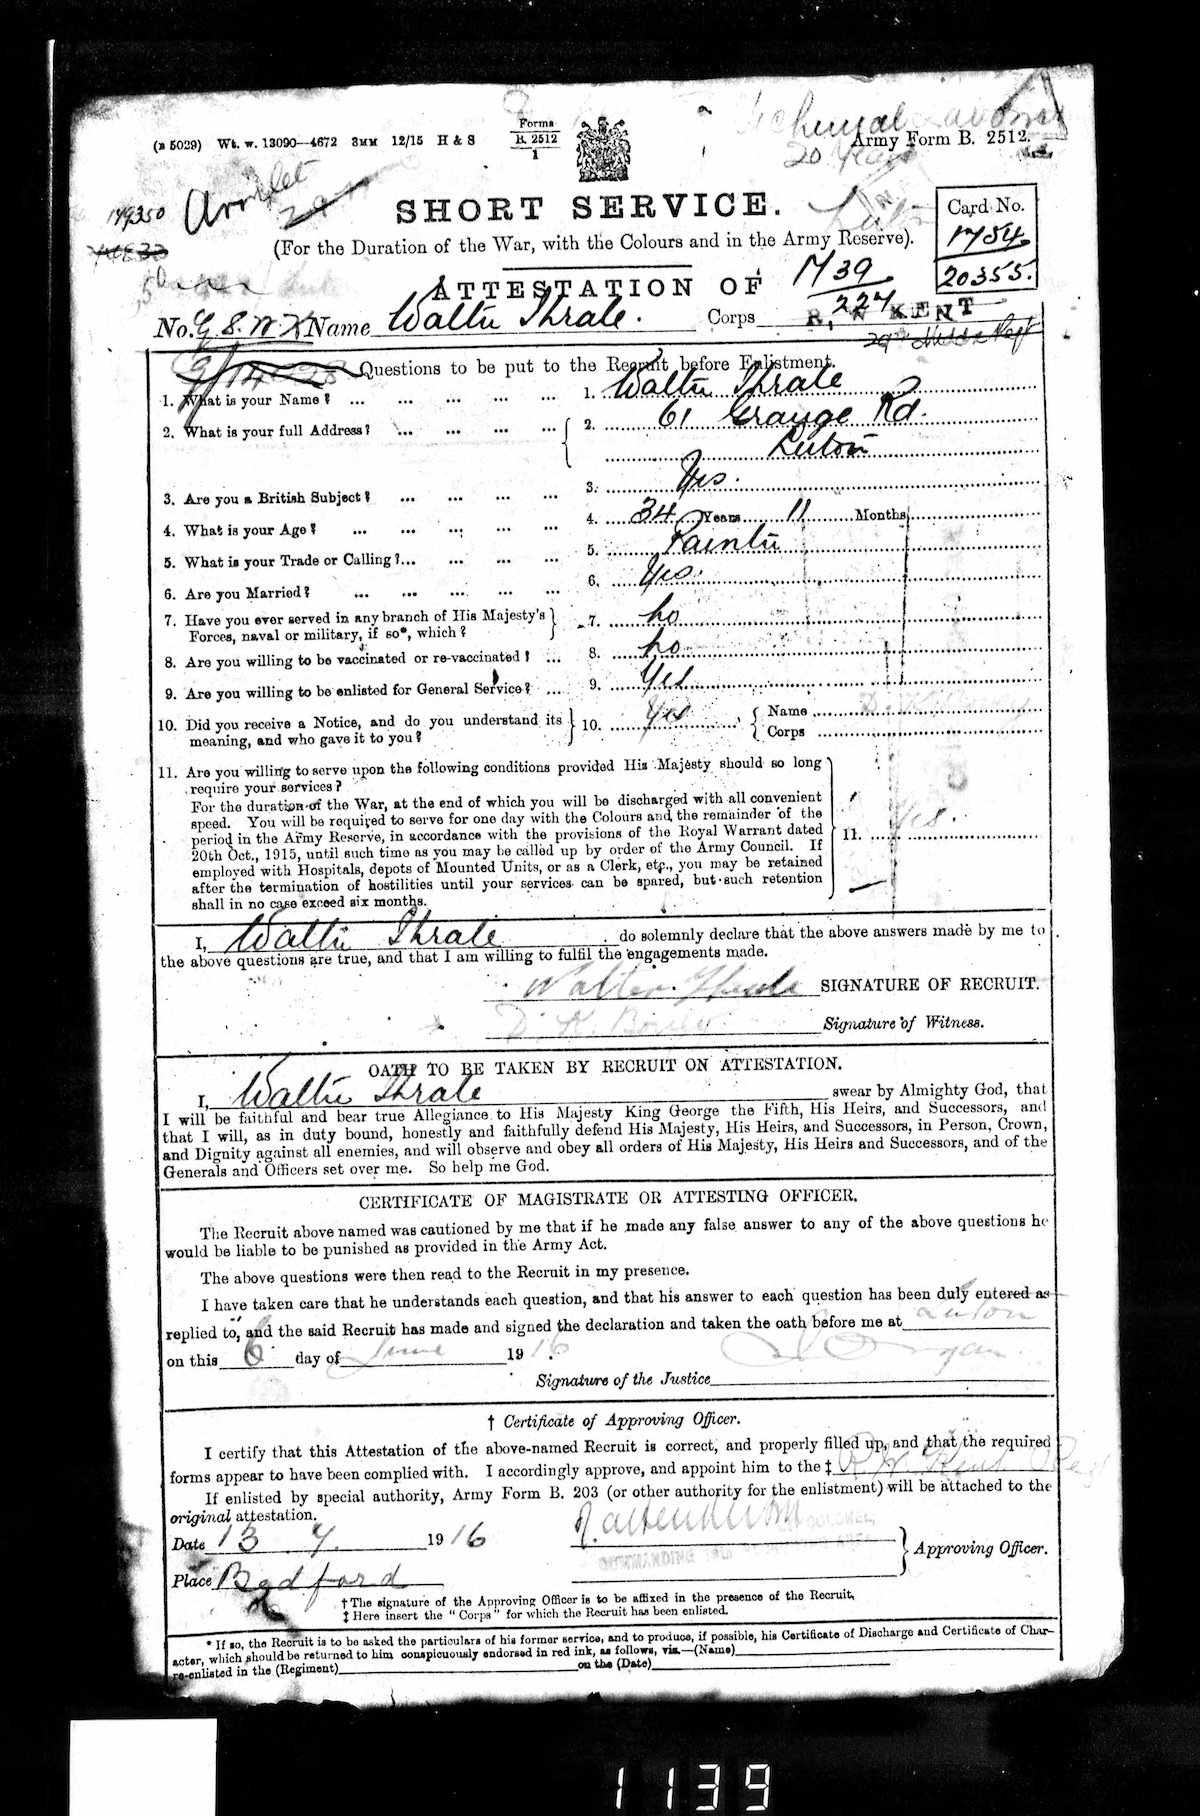 (B 5029) Wt. w. 13090—4672 3MM 12/15 H & S
Forms
B. 2512
1
Army Form B. 2512.
20 Years
Armlet
149350
SHORT SERVICE.
Card No.
1754
20355.
(For the Duration of the War, with the Colours and in the Army Reserve).
ATTESTATION OF
1739
227
No. G.S.W.K Name Walter Thrale. Corps R. W KENT
Questions to be put to the Recruit before Enlistment.
1. What is your Name? ... ... ... ... ... 1. Walter Thrale
2. What is your full Address? ... ... ... ... 2. 61 Grange Rd.
Luton
3. Are you a British Subject? ... ... ... ... 3. Yes.
4. What is your Age? ... ... ... ... ... 4. 34 Years 11 Months
5. What is your Trade or Calling?... ... ... ... 5. Painter
6. Are you Married? ... ... ... ... ... 6. Yes.
7. Have you ever served in any branch of His Majesty's
Forces, naval or military, if so*, which? 7. No
8. Are you willing to be vaccinated or re-vaccinated? ... 8. No
9. Are you willing to be enlisted for General Service? ... 9. Yes
10. Did you receive a Notice, and do you understand its
meaning, and who gave it to you? 10. Yes Name
Corps
11. Are you willing to serve upon the following conditions provided His Majesty should so long
require your services?
For the duration of the War, at the end of which you will be discharged with all convenient
speed. You will be required to serve for one day with the Colours and the remainder of the
period in the Army Reserve, in accordance with the provisions of the Royal Warrant dated
20th Oct., 1915, until such time as you may be called up by order of the Army Council. If
employed with Hospitals, depots of Mounted Units, or as a Clerk, etc., you may be retained
after the termination of hostilities until your services can be spared, but such retention
shall in no case exceed six months.
11. Yes.
I, Walter Thrale do solemnly declare that the above answers made by me to
the above questions are true, and that I am willing to fulfil the engagements made.
Walter Thrale SIGNATURE OF RECRUIT.
D. K. Signature of Witness.
OATH TO BE TAKEN BY RECRUIT ON ATTESTATION.
I, Walter Thrale swear by Almighty God, that
I will be faithful and bear true Allegiance to His Majesty King George the Fifth, His Heirs, and Successors, and
that I will, as in duty bound, honestly and faithfully defend His Majesty, His Heirs, and Successors, in Person, Crown,
and Dignity against all enemies, and will observe and obey all orders of His Majesty, His Heirs and Successors, and of the
Generals and Officers set over me. So help me God.
CERTIFICATE OF MAGISTRATE OR ATTESTING OFFICER.
The Recruit above named was cautioned by me that if he made any false answer to any of the above questions he
would be liable to be punished as provided in the Army Act.
The above questions were then read to the Recruit in my presence.
I have taken care that he understands each question, and that his answer to each question has been duly entered as
replied to, and the said Recruit has made and signed the declaration and taken the oath before me at Luton
on this 6 day of June 1916.
Signature of the Justice
† Certificate of Approving Officer.
I certify that this Attestation of the above-named Recruit is correct, and properly filled up, and that the required
forms appear to have been complied with. I accordingly approve, and appoint him to the ‡ R. W. Kent Reg
If enlisted by special authority, Army Form B. 203 (or other authority for the enlistment) will be attached to the
original attestation.
Date 13 7. 1916
COLONEL,
COMMANDING AREA
Approving Officer.
Place Bedford
† The signature of the Approving Officer is to be affixed in the presence of the Recruit.
‡ Here insert the "Corps" for which the Recruit has been enlisted.
* If so, the Recruit is to be asked the particulars of his former service, and to produce, if possible, his Certificate of Discharge and Certificate of Char-
acter, which should be returned to him conspicuously endorsed in red ink, as follows, viz.—(Name)
re-enlisted in the (Regiment) on the (Date)
1139